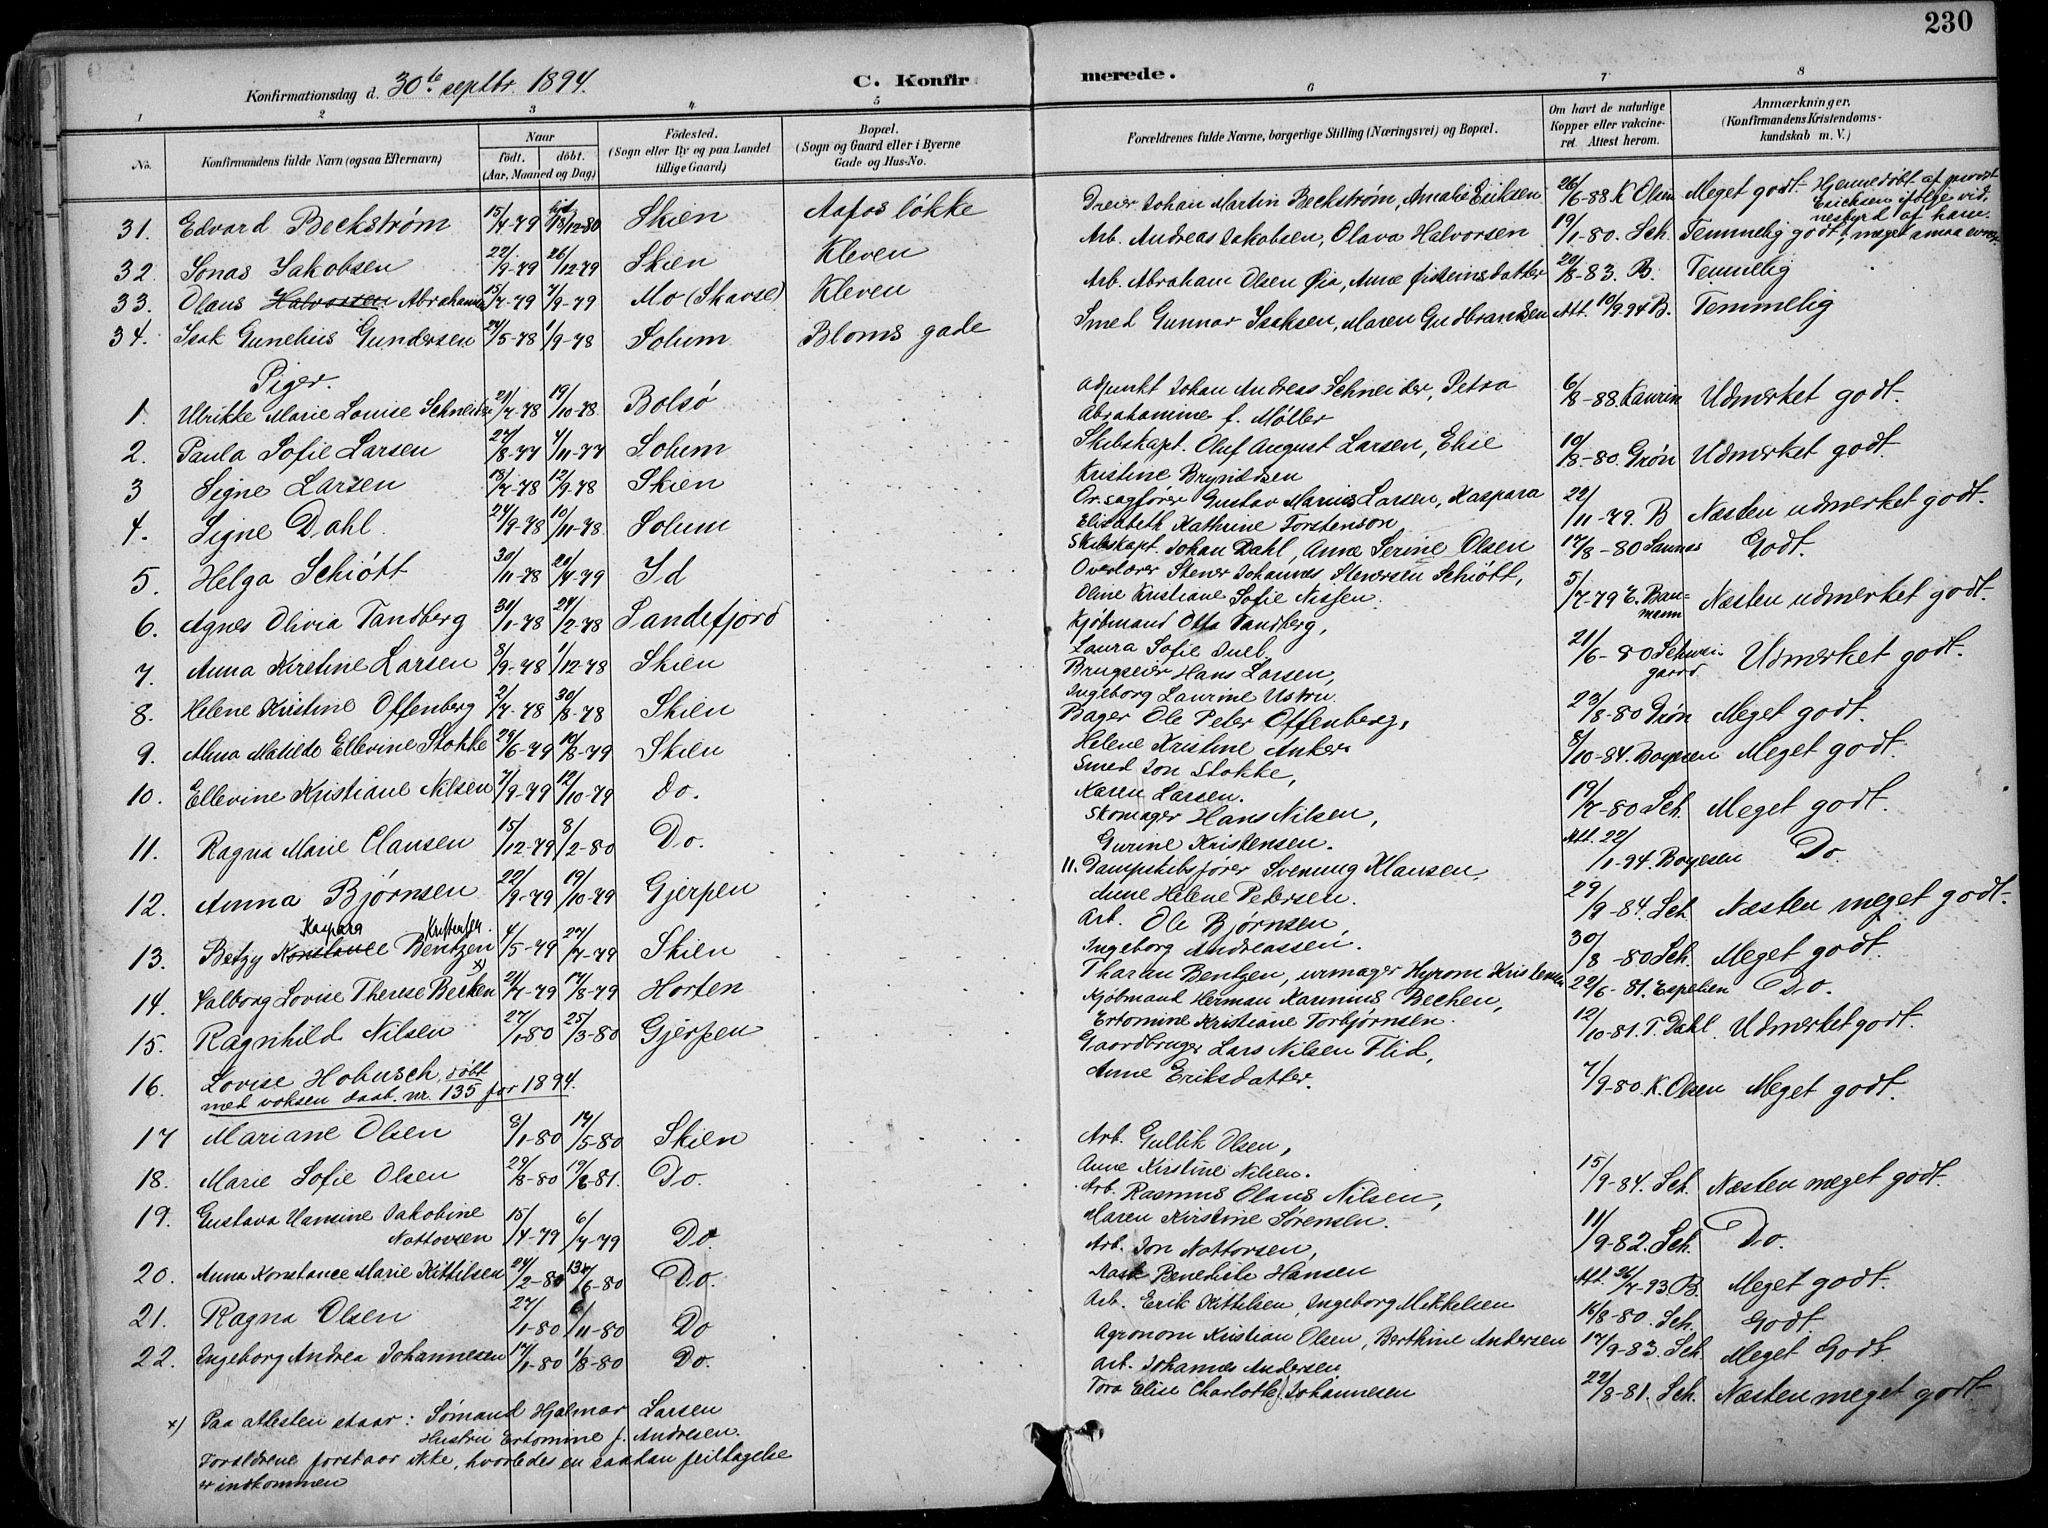 230
Konfirmationsdag d. 30te septbr. 1894.
C. Konfirmerede.
1 2 3 4 5 6 7 8
No. Konfirmandens fulde Navn (ogsaa Efternavn) Naar født. døbt. (Aar, Maaned og Dag) Fødested. (Sogn eller By og paa Landet tillige Gaard) Bopæl. (Sogn og Gaard eller i Byerne Gade og Hus-No. Forældrenes fulde Navne, borgerlige Stilling (Næringsvei) og Bopæl. Om havt de naturlige Kopper eller vakcineret. Attest herom. Anmærkninger. (Konfirmandens Kristendomskundskab m. V.)
31. Edvard Beckstrøm 15/4-79 13/12-80 Skien Aafos løkke Dreier Johan Martin Beckstrøm, Amalie Eriksen 26/6-88 K Olsen Meget godt. Hjemmedøbt af provst Ericksen ifølge vidnesbyrd af ham.
32. Jonas Jakobsen 22/9-79 26/12-79 Skien Kleven Arb. Andreas Jakobsen, Olava Halvorsen 19/1-80. Sch. Temmelig godt, meget smaa evner
33. Olaus Halvorsen Abrahamsen 15/7-79 7/9-79 Mo (Skavse) Kleven Arb. Abraham Olsen Øia, Anne Øisteinsdatter 20/8-83. B. Temmelig
34. Isak Gunelius Gundersen 24/5-78 1/9-78 Solum Bloms gade Smed Gunnar Isaksen, Maren Gudbrandsen Att. 10/9.94 B. Temmelig
Piger.
1. Ulrikke Marie Louise Schneider 21/7-78 19/10-78. Bolsø Adjunkt Johan Andreas Schneider, Petra Abrahamine f. Møller 6/8-88. Kaurin Udmerket godt.
2. Paula Sofie Larsen 27/8-77 4/11-77 Solum Skibskapt. Oluf August Larsen, Elise Kristine Bryndsen 10/8-80. Grøn Udmerket godt.
3 Signe Larsen 13/7-78 12/9-78 Skien Or. sagfører Gustav Marius Larsen, Kaspara Elisabeth Kathrine Torstenson 22/11-79. B Næsten udmerket godt.
4. Signe Dahl. 24/9-78 10/11-78. Solum Skibskapt. Johan Dahl, Anne Serine Olsen 17/8-80 Sannes Godt.
5. Helga Schiøtt 30/11-78 20/4-79 Id Overlærer Stener Johannes Stenersen Schiøtt, Oline Kristiane Sofie Nissen. 5/7-79 E. Baumann Næsten udmerket godt.
6. Agnes Olivia Tandberg 31/1-78 24/2-78 Sandefjord Kjøbmand Otto Tandberg, Laura Sofie Juel. 21/6-80 Schweigaard Udmerket godt.
7. Anna Kristine Larsen 8/9-78 1/12-78 Skien Brugseier Hans Larsen, Ingeborg Laurine Ustru. 23/8-80 Grøn Meget godt.
8. Helene Kristine Offenberg 2/7-78 30/8-78 Skien Bager Ole Peter Offenberg, Helene Kristine Anker 8/10-84. Boyesen Meget godt.
9. Alma Matilde Ellevine Stokke 29/6-79 10/8-79 Skien Smed Jon Stokke, Karen Larsen. 19/7-80 Sch. Meget godt.
10. Ellevine Kristiane Nilsen 7/9-79 12/10-79 Do. Skomager Hans Nilsen, Gurine Kristensen. Att. 22/1-94. Boyesen Do.
11. Ragna Marie Clausen 15/12-79 8/2-80 Do. 11. Dampskibsfører Svenung Klausen, Anne Helene Pedersen. 29/9-84. Sch. Næsten meget godt.
12. Anna Bjørnsen 22/9-79 19/10-79 Gjerpen Arb. Ole Bjørnsen, Ingeborg Andreassen. 30/8-80 Sch. Meget godt.
13. Betzy Konstance Kaspara Bentzen Kristensen. 4/5-79 27/7-79 Skien Tharan Bentzen, urmager Hyrom Kristensen 22/6-81. Espelien Do.
14. Valborg Lovise Therese Becken x) 21/7-79 17/8-79 Horten Kjøbmand Herman Rasmus Bechen, Ertomine Kristiane Torbjørnsen. 12/10-81. T. Dahl. Udmerket godt.
15. Ragnhild Nilsen 27/1-80 25/3-80 Gjerpen Gaardbruger Lars Nilsen Flid, Anne Eriksdatter. 7/9-80. K. Olsen Meget godt.
16. Lovise Hobusch, døbt
med voksen daab. nr. 135 for 1894.
17 Mariane Olsen 8/1-80 17/5-80 Skien Arb. Gullik Olsen, Anne Kirstine Nilsen. 15/9-84. Sch. Næsten meget godt.
18. Marie Sofie Olsen 29/8-80 19/6-81. Do. Arb. Rasmus Olaus Nilsen, Maren Kirstine Sørensen. 11/9-82. Sch. Do.
19. Gustava Hansine Jakobine Nottovsen 15/4-79 6/7-79 Do. Arb. Jon Nottovsen, Benedikte Hansen Att. 26/7-93. B. Meget godt.
20. Anna Konstance Marie Kittilsen 24/2-80 13/6-80 Do. Arb. Erik Kittilsen, Ingeborg Mikkelsen 16/8-80. Sch. Godt.
21. Ragna Olsen 27/1-80 6/11-80 Do Agronom Kristian Olsen, Berthine Andersen 17/9-83. Sch. Meget Godt.
22. Ingeborg Andrea Johannesen 17/1-80 1/8-80 Do. Arb. Johannes Andersen, Tora Elise Charlotte Johannesen 22/8-81. Sch. Næsten meget godt
x) Paa attesten staar: Sømand Hjalmar Larsen
Hustru Ertomine f. Andresen.
Forældrene forstaar ikke, hvorledes en saadan feiltagelse
er indkommen